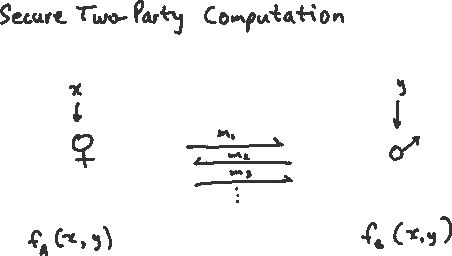 Secure Two-Party Computation
x y
m₁
m₂
m₃
⋮
f_A (x, y) f_B (x, y)